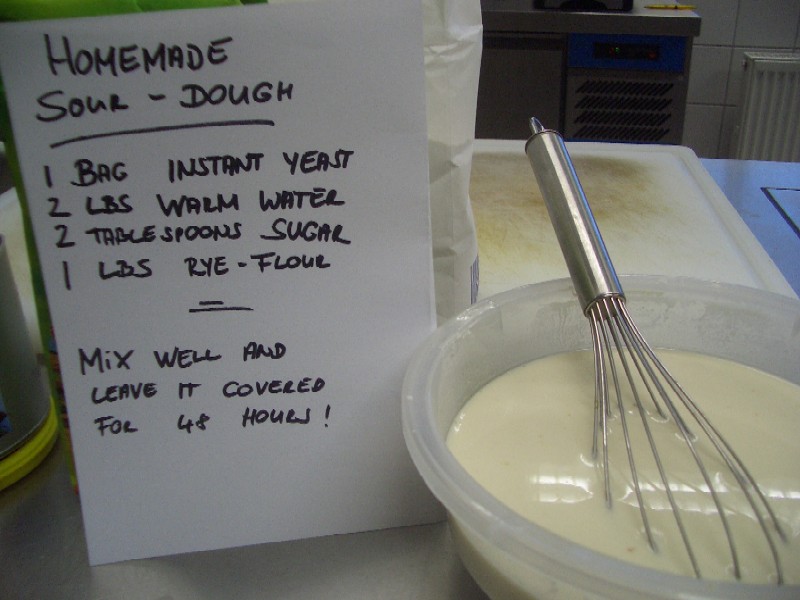 HOMEMADE
SOUR - DOUGH
1 BAG INSTANT YEAST
2 LBS WARM WATER
2 TABLESPOONS SUGAR
1 LBS RYE-FLOUR
MIX WELL AND
LEAVE IT COVERED
FOR 48 HOURS!